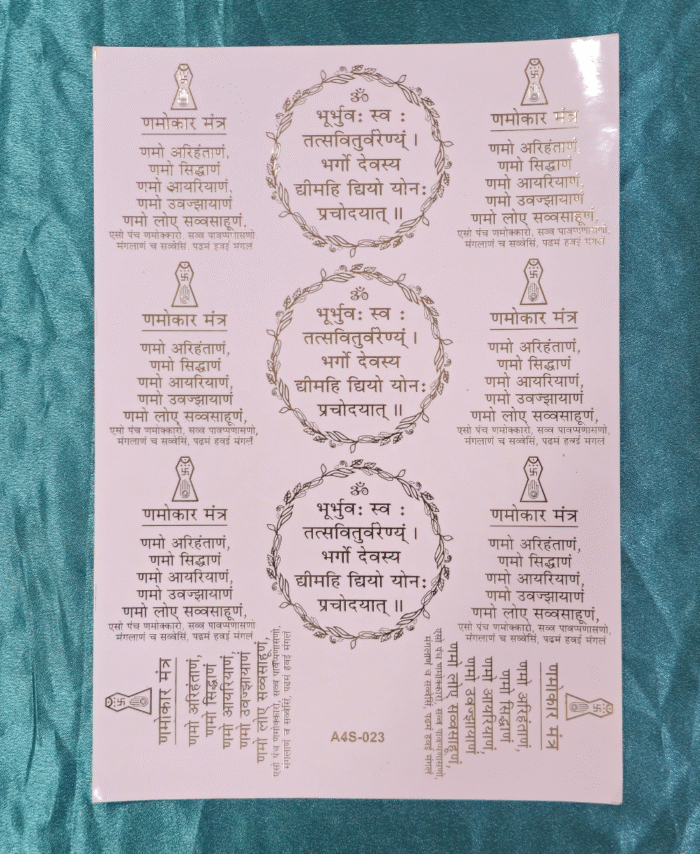 णमोकार मंत्र
णमो अरिहंताणं,
णमो सिद्धाणं
णमो आयरियाणं,
णमो उवज्झायाणं
णमो लोए सव्वसाहूणं,
एसो पंच णमोक्कारो, सव्व पावप्पणासणो
मंगलाणं च सव्वेसिं, पढमं हवई मंगलं
ॐ
भूर्भुवः स्व :
तत्सवितुर्वरेण्यं ।
भर्गो देवस्य
द्यीमहि द्यियो योनः
प्रचोदयात् ॥
णमोकार मंत्र
णमो अरिहंताणं,
णमो सिद्धाणं
णमो आयरियाणं,
णमो उवज्झायाणं
णमो लोए सव्वसाहूणं,
एसो पंच णमोक्कारो, सव्व पावप्पणासणो
मंगलाणं च सव्वेसिं, पढमं हवई मंगलं
णमोकार मंत्र
णमो अरिहंताणं,
णमो सिद्धाणं
णमो आयरियाणं,
णमो उवज्झायाणं
णमो लोए सव्वसाहूणं,
एसो पंच णमोक्कारो, सव्व पावप्पणासणो,
मंगलाणं च सव्वेसिं, पढमं हवई मंगलं
ॐ
भूर्भुवः स्व :
तत्सवितुर्वरेण्यं ।
भर्गो देवस्य
द्यीमहि द्यियो योनः
प्रचोदयात् ॥
णमोकार मंत्र
णमो अरिहंताणं,
णमो सिद्धाणं
णमो आयरियाणं,
णमो उवज्झायाणं
णमो लोए सव्वसाहूणं,
एसो पंच णमोक्कारो, सव्व पावप्पणासणो,
मंगलाणं च सव्वेसिं, पढमं हवई मंगलं
णमोकार मंत्र
णमो अरिहंताणं,
णमो सिद्धाणं
णमो आयरियाणं,
णमो उवज्झायाणं
णमो लोए सव्वसाहूणं,
एसो पंच णमोक्कारो, सव्व पावप्पणासणो,
मंगलाणं च सव्वेसिं, पढमं हवई मंगलं
ॐ
भूर्भुवः स्व :
तत्सवितुर्वरेण्यं ।
भर्गो देवस्य
द्यीमहि द्यियो योनः
प्रचोदयात् ॥
णमोकार मंत्र
णमो अरिहंताणं,
णमो सिद्धाणं
णमो आयरियाणं,
णमो उवज्झायाणं
णमो लोए सव्वसाहूणं,
एसो पंच णमोक्कारो, सव्व पावप्पणासणो,
मंगलाणं च सव्वेसिं, पढमं हवई मंगलं
णमोकार मंत्र
णमो अरिहंताणं,
णमो सिद्धाणं
णमो आयरियाणं,
णमो उवज्झायाणं
णमो लोए सव्वसाहूणं,
एसो पंच णमोक्कारो, सव्व पावप्पणासणो,
मंगलाणं च सव्वेसिं, पढमं हवई मंगलं
A4S-023
णमोकार मंत्र
णमो अरिहंताणं,
णमो सिद्धाणं
णमो आयरियाणं,
णमो उवज्झायाणं
णमो लोए सव्वसाहूणं,
एसो पंच णमोक्कारो, सव्व पावप्पणासणो,
मंगलाणं च सव्वेसिं, पढमं हवई मंगलं